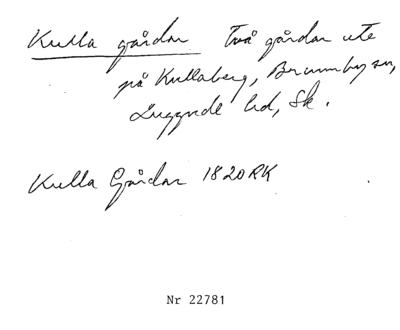 Kulla gårdar Två gårdar ute
på Kullaberg, Brunnby sn,
Luggude hd, Sk.
Kulla Gårdar 1820 RK
Nr 22781